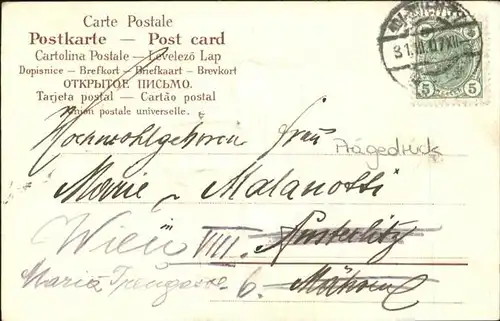 Carte Postale
Postkarte — Post card
Cartolina Postale — Levelező Lap
Dopisnice — Brefkort — Briefkaart — Brevkort
ОТКРЫТОЕ ПИСЬМО.
Tarjeta postal — Cartão postal
Union postale universelle.
31.III.07.XII
5 5
Hochwohlgeboren Frau
Prägedruck
Marie Malanotti
in
Wien VIII. Austerlitz
Maria Treugasse 6. Mähren